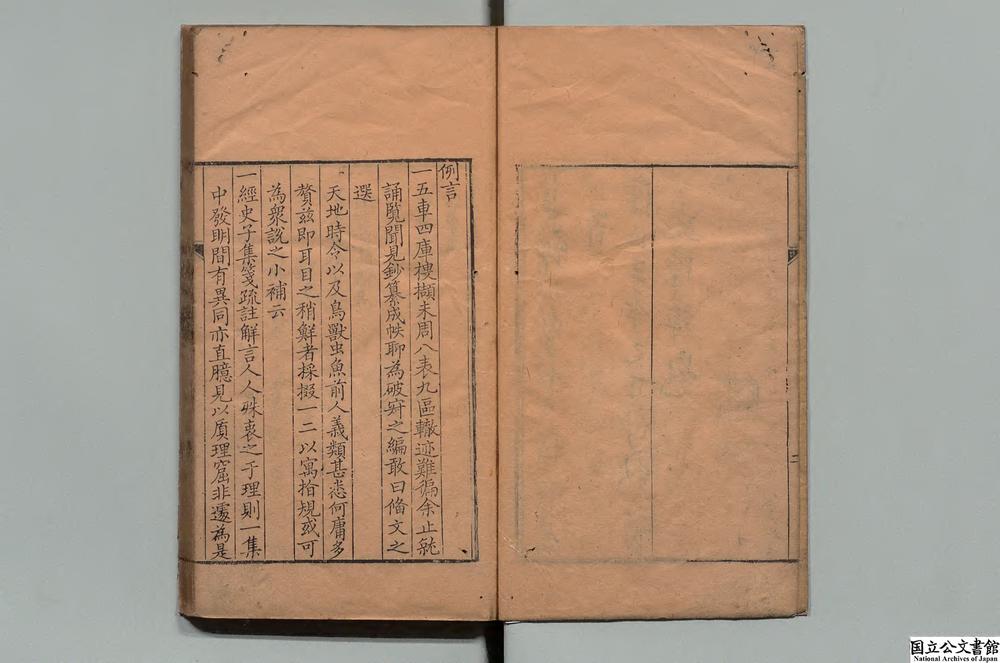 例言
一五車四庫摟擷未周八表九區轍迹難徧余止就
誦覧聞見鈔纂成帙聊為破寂之編敢曰脩文之
選
天地時令以及鳥獸虫魚前人義類甚悉何庸多
贅兹即耳目之稍鮮者採掇一二以寓拾規或可
為衆說之小補云
一經史子集箋疏註解言人人殊衷之于理則一集
中發明間有異同亦直臆見以質理窟非遽為是
二
国立公文書館
National Archives of Japan